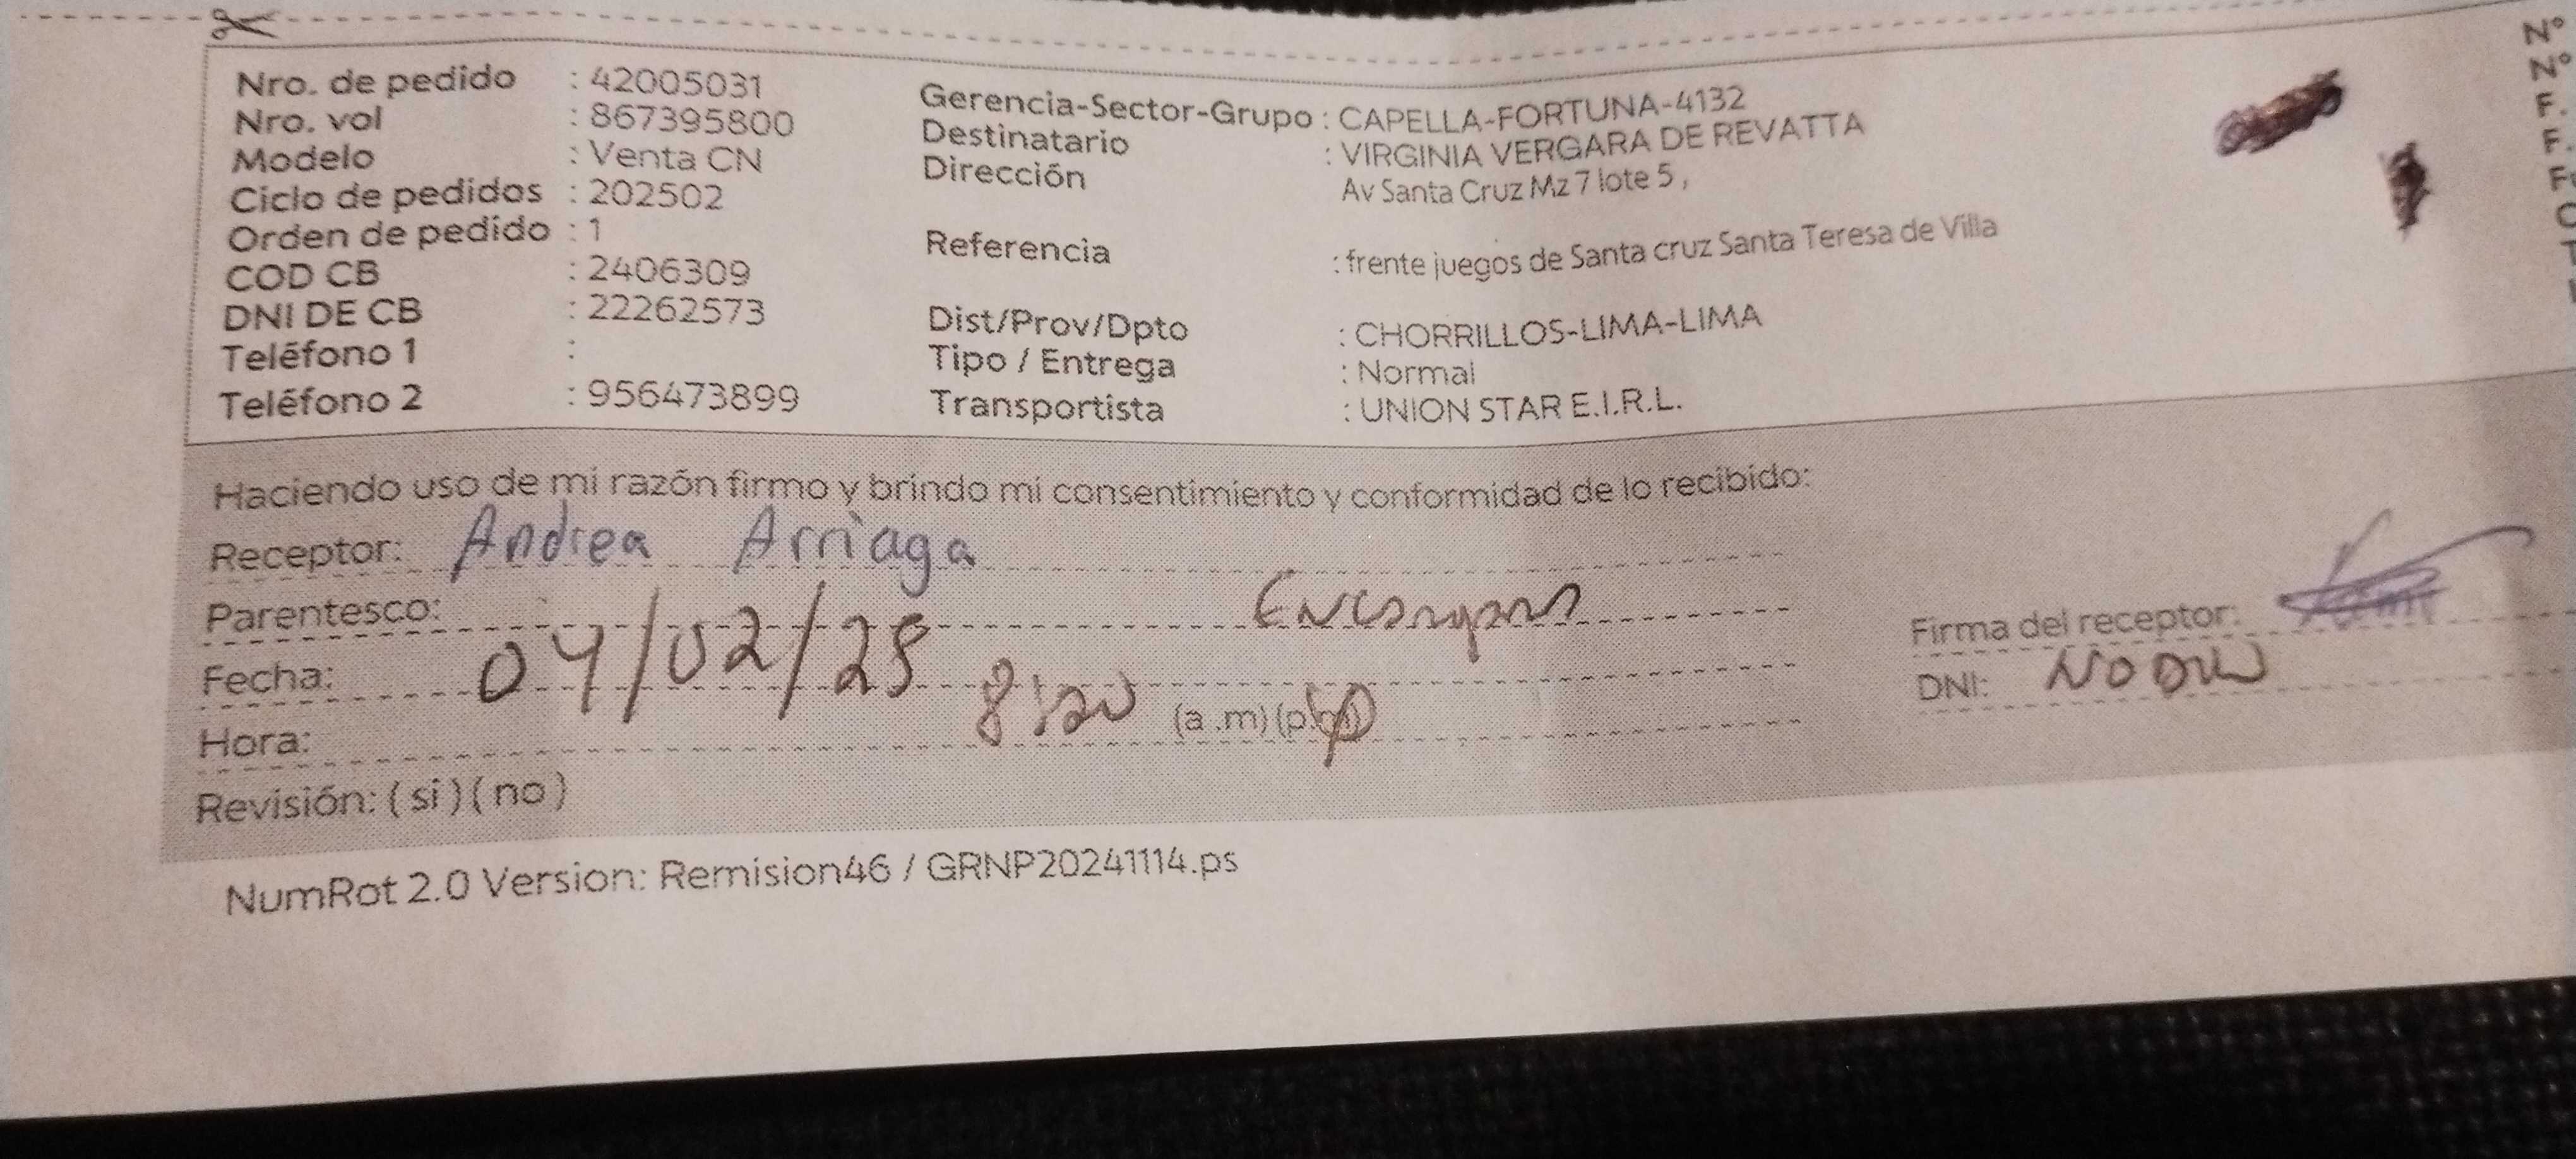 Nro. de pedido : 42005031
Nro. vol : 867395800
Modelo : Venta CN
Ciclo de pedidos : 202502
Orden de pedido : 1
COD CB : 2406309
DNI DE CB : 22262573
Teléfono 1 :
Teléfono 2 : 956473899
Gerencia-Sector-Grupo : CAPELLA-FORTUNA-4132
Destinatario : VIRGINIA VERGARA DE REVATTA
Dirección Av Santa Cruz Mz 7 lote 5 ,
Referencia : frente juegos de Santa cruz Santa Teresa de Villa
Dist/Prov/Dpto : CHORRILLOS-LIMA-LIMA
Tipo / Entrega : Normal
Transportista : UNION STAR E.I.R.L.
N°
N°
F.
F.
Haciendo uso de mi razón firmo y brindo mi consentimiento y conformidad de lo recibido:
Receptor: Andrea Arriaga
Parentesco:
Fecha: 04/02/25
Hora: (a .m) (p.m)
Revisión: ( si ) ( no )
Firma del receptor:
DNI: NO
NumRot 2.0 Version: Remision46 / GRNP20241114.ps